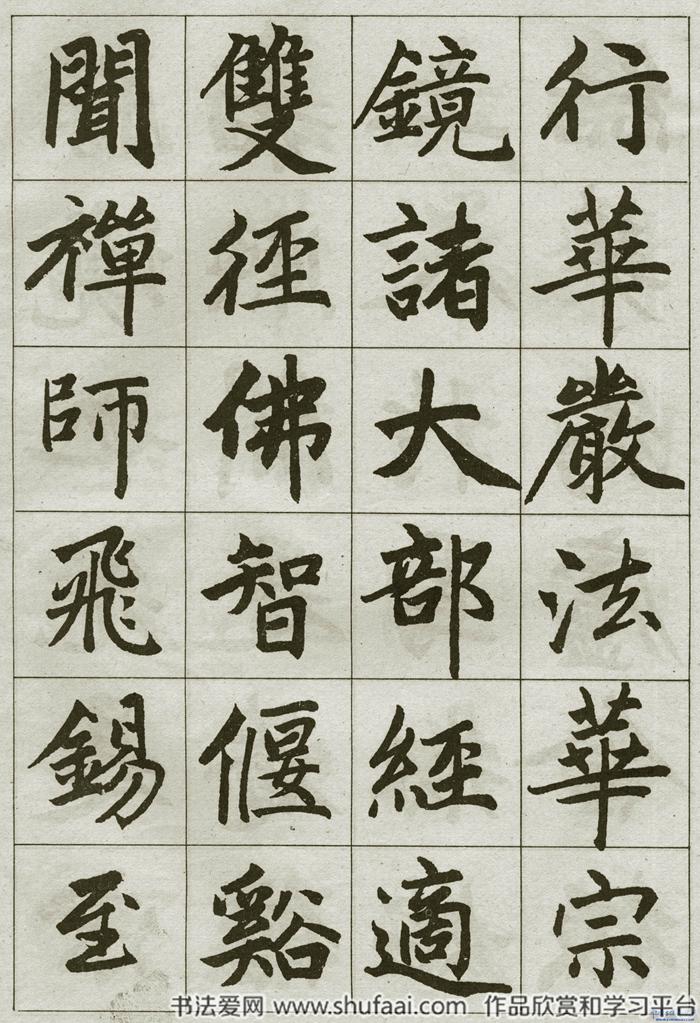 行華嚴法華宗
鏡諸大部經適
雙徑佛智偃谿
聞禪師飛錫至
书法爱网 www.shufaai.com 作品欣赏和学习平台